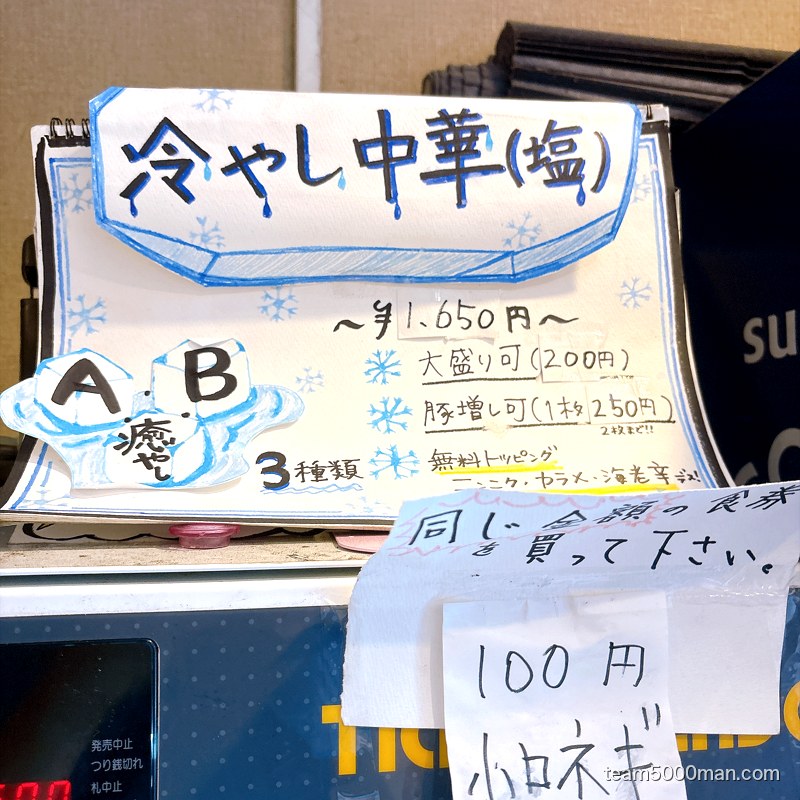 冷やし中華(塩)
〜¥1,650円〜
大盛り可(200円)
豚増し可(1枚250円)
2枚まで!!
A・B
癒やし
3種類
無料トッピング
ニンニク・カラメ・海老辛デス!
同じ金額の食券
を買って下さい。
100円
小口ネギ
発売中止
つり銭切れ
札中止
su
team5000man.com